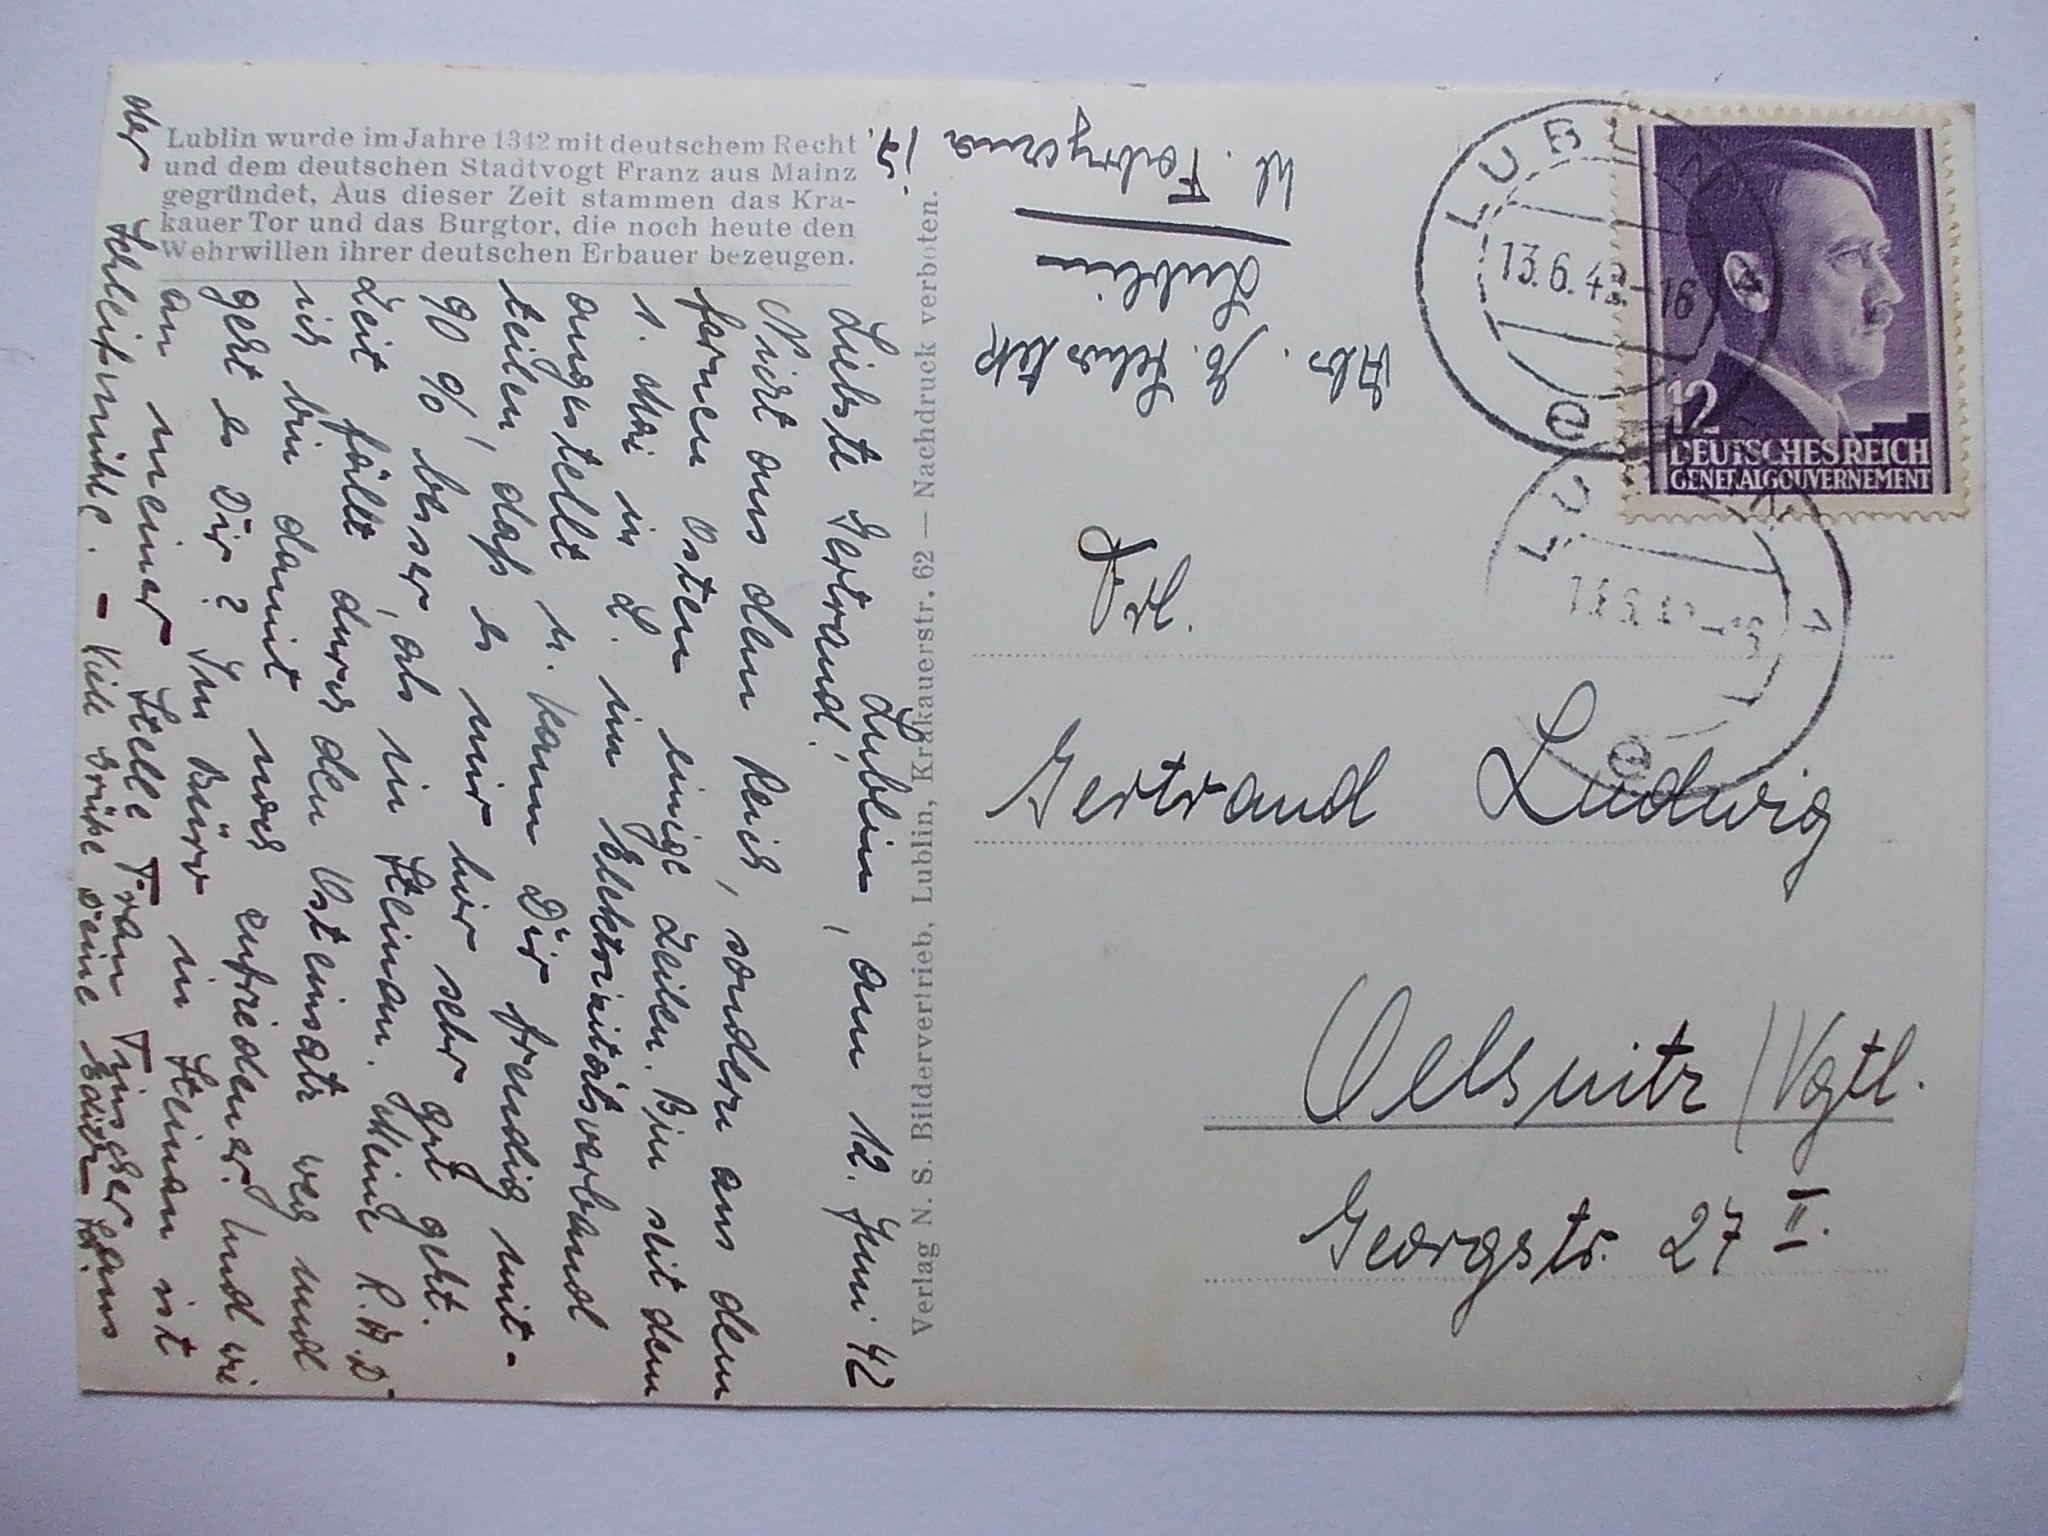 Lublin wurde im Jahre 1342 mit deutschem Recht
und dem deutschen Stadtvogt Franz aus Mainz
gegründet, Aus dieser Zeit stammen das Kra-
kauer Tor und das Burgtor, die noch heute den
Wehrwillen ihrer deutschen Erbauer bezeugen.
Lublin, am 12. Juni 42
Liebste Gertraud!
Nicht aus dem Reich, sondern aus dem
fernen Osten einige Zeilen. Bin seit dem
1. Mai in L. im Elektrizitätsverband
angestellt u. kann Dir freudig mit-
teilen, daß es mir hier sehr gut geht.
90 % besser, als in Steinau. Meine R.A.D.
Zeit fällt durch den Osteinsatz weg und
ich bin damit noch zufriedener. Und wie
geht es Dir? Im Büro in Steinau ist
an meiner Stelle Frau aus
der Schleifmühle. – Viele Grüße Deine
Verlag N. S. Bildervertrieb, Lublin, Krakauerstr. 62 — Nachdruck verboten.
Abs.
Lublin
17.
LUBLIN
13.6.42-16
12
DEUTSCHES REICH
GENERALGOUVERNEMENT
LUBLIN 1
Frl.
Gertraud Ludwig
Oelsnitz / Vgtl.
Georgstr. 27 II.